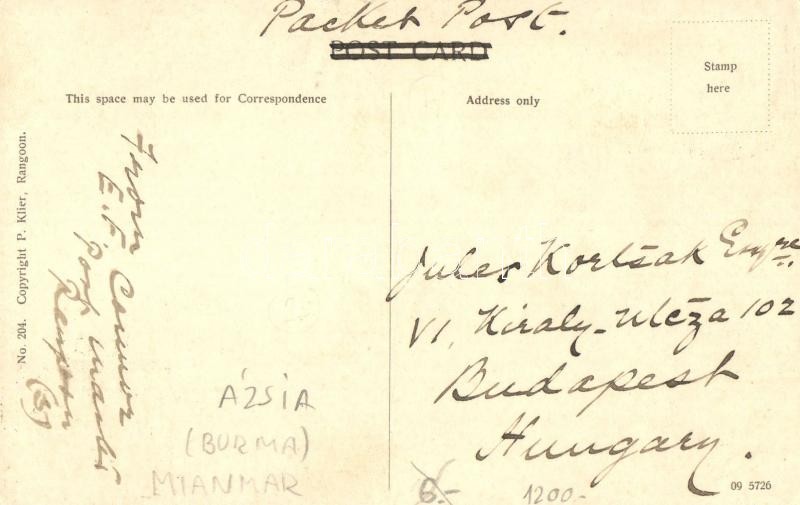 Packet Post.
POST CARD
Stamp
here
This space may be used for Correspondence
Address only
No. 204. Copyright P. Klier, Rangoon.
From
E. F. Connor
Post Master
Rangoon
Jules Kortsak Esqre.
VI, Kiraly-Utcza 102
Budapest
Hungary.
ÁZSIA
(BURMA)
MIANMAR
6.-
1200-
09 5726